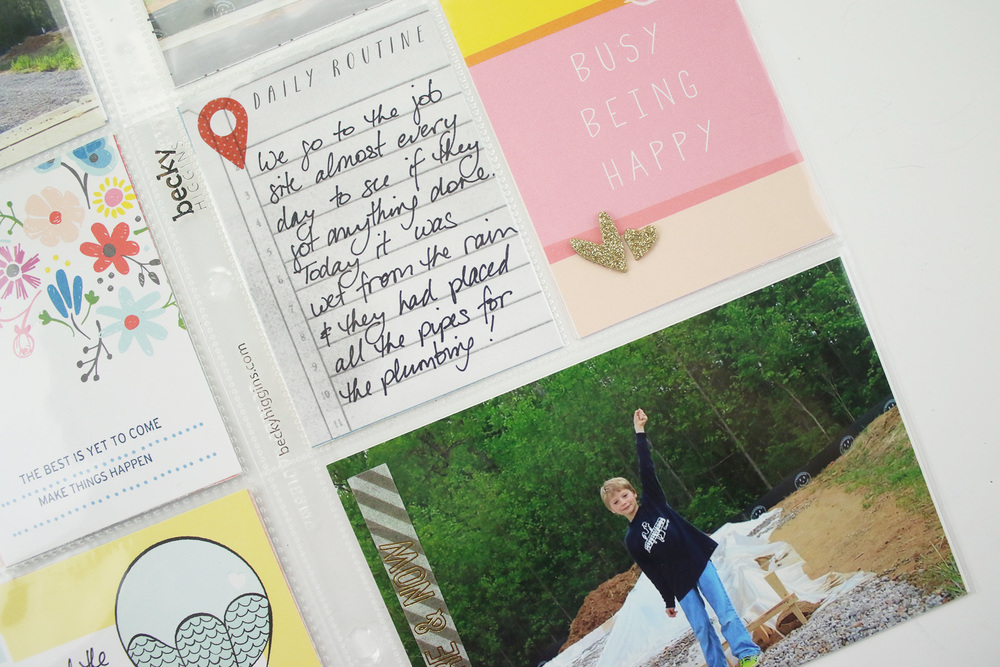 DAILY ROUTINE
We go to the job
site almost every
day to see if they
got anything done.
Today it was
wet from the rain
& they had placed
all the pipes for
the plumbing!
3
4
5
6
7
8
9
10
11
BUSY
BEING
HAPPY
becky
HIGGINS
beckyhiggins.com
THE BEST IS YET TO COME
MAKE THINGS HAPPEN
& NOW
the